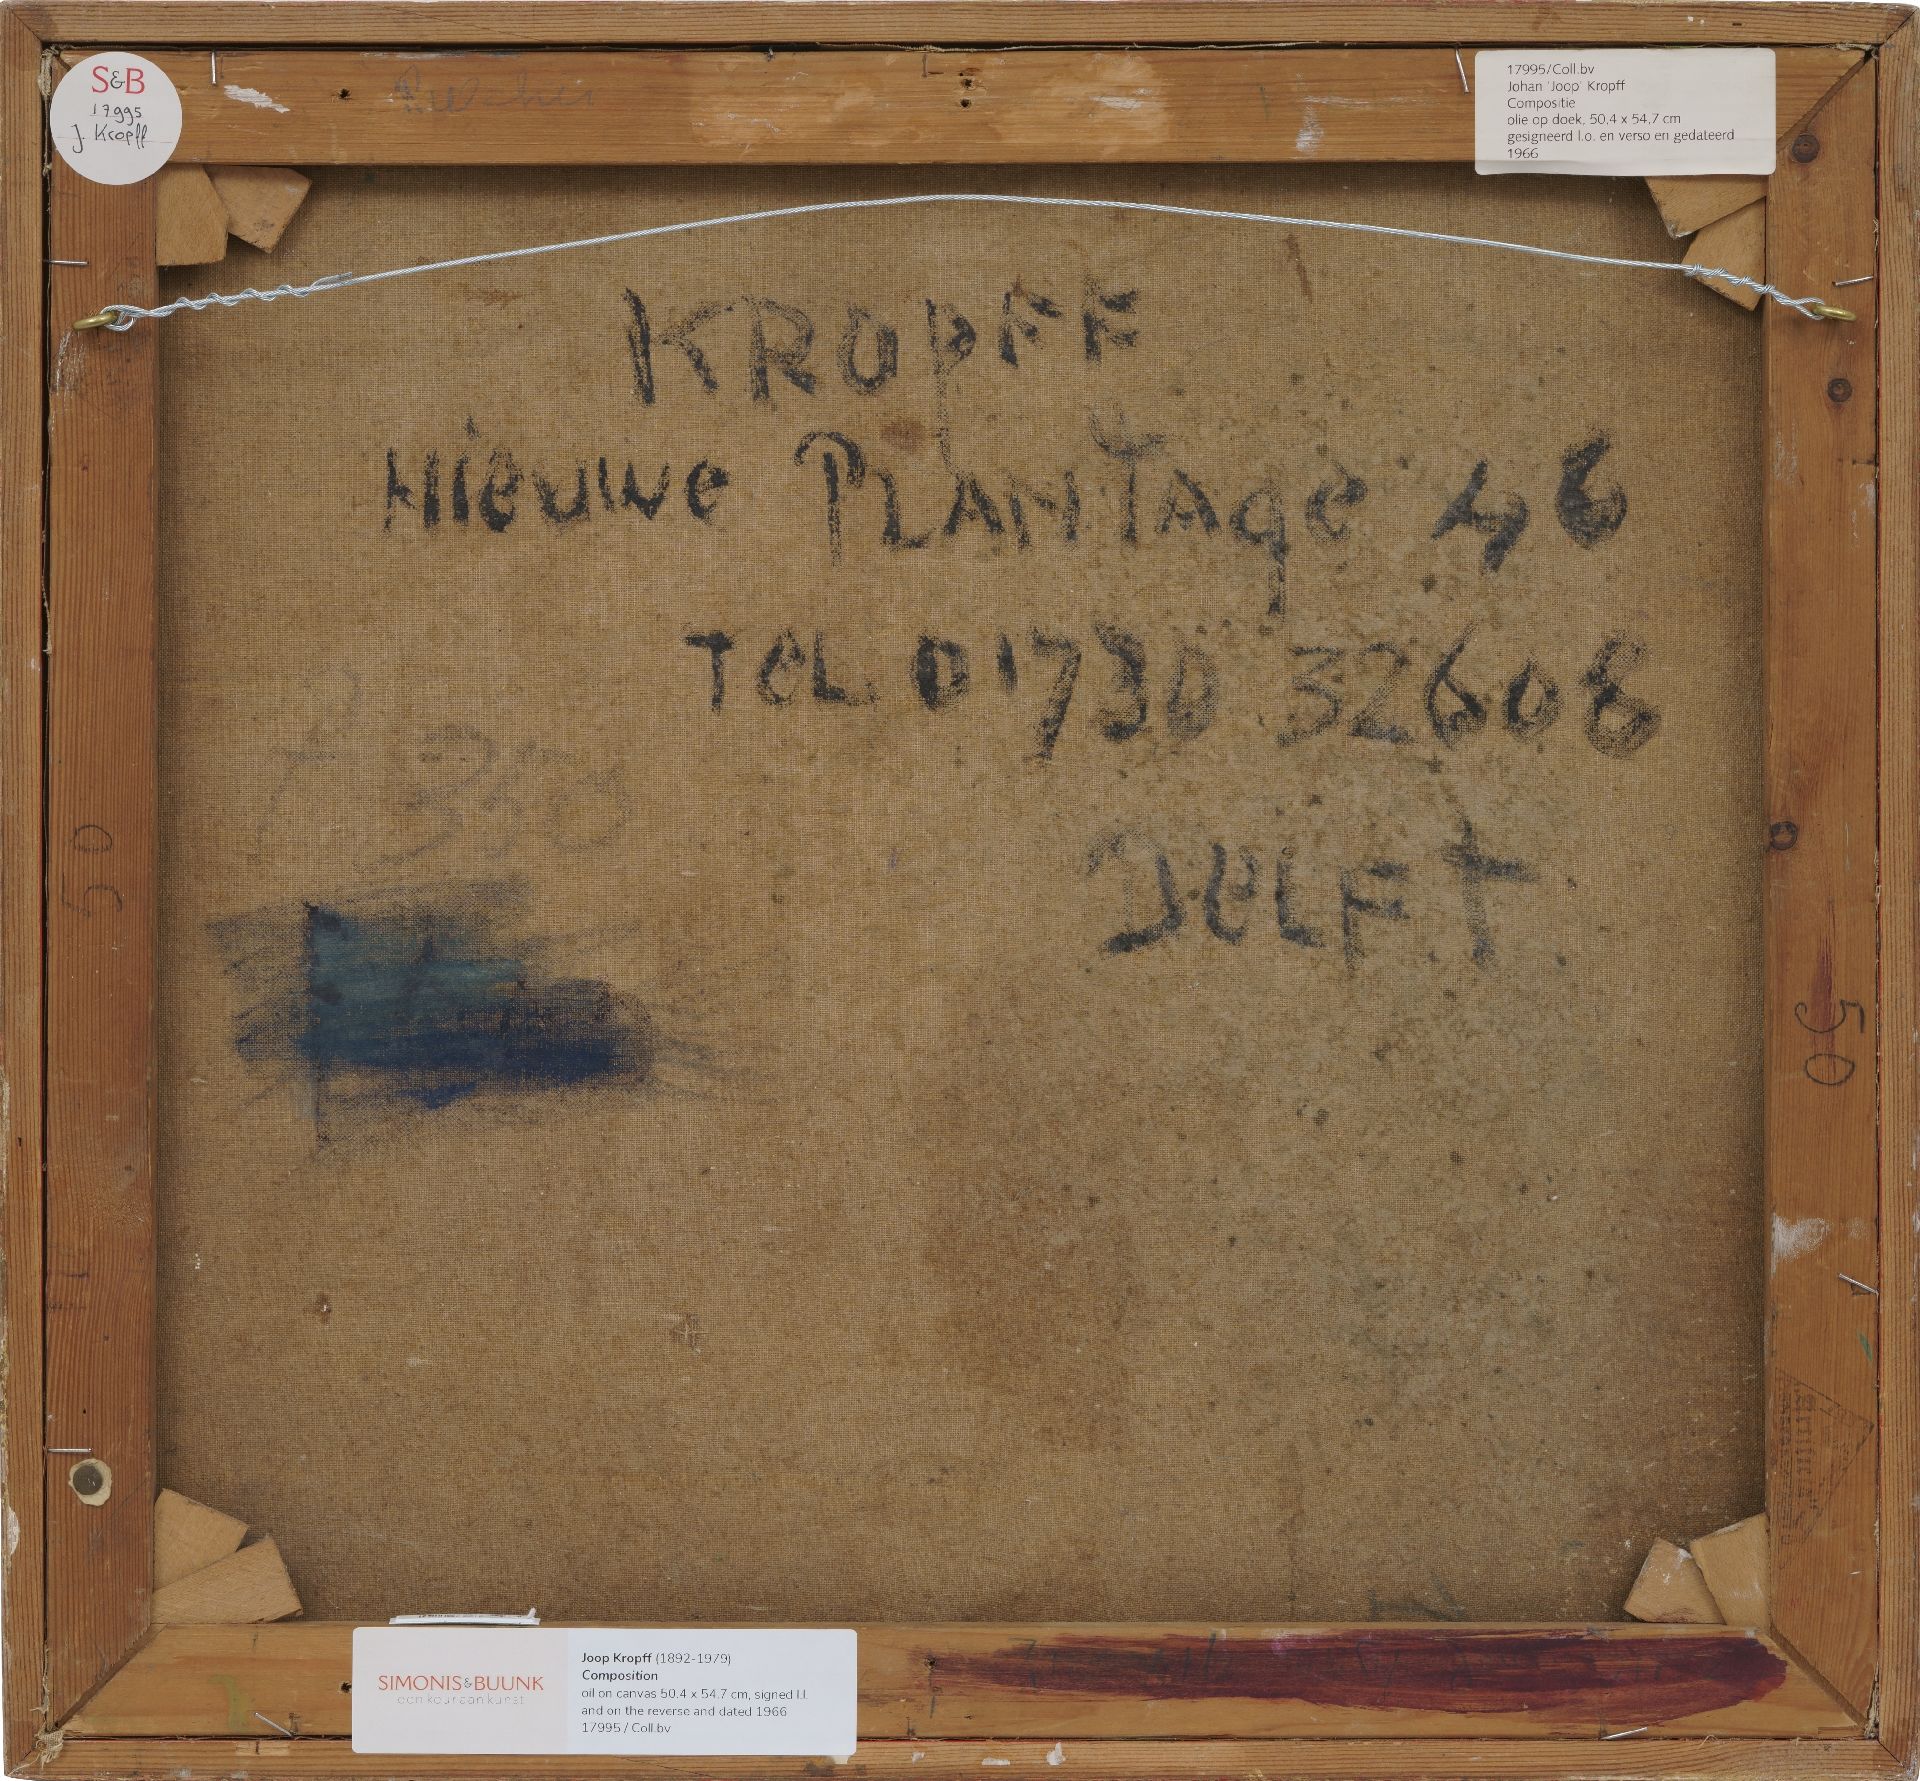 S&B
17995
J. Kropff
17995/Coll.bv
Johan 'Joop' Kropff
Compositie
olie op doek, 50,4 x 54,7 cm
gesigneerd l.o. en verso en gedateerd
1966
KROPFF
Nieuwe PLANTAge 46
TeL 01730 32608
DeLFT
50
50
SIMONIS&BUUNK
een keur aan kunst
Joop Kropff (1892-1979)
Composition
oil on canvas 50.4 x 54.7 cm, signed l.l.
and on the reverse and dated 1966
17995 / Coll.bv